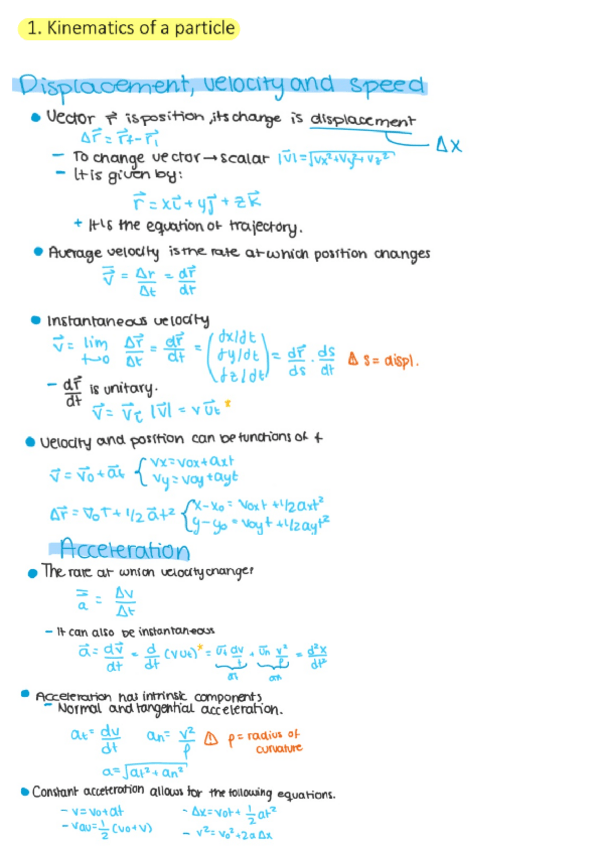 1. Kinematics of a particle
Displacement, velocity and speed
• Vector r⃗ is position, its change is displacement
Δr⃗ = r⃗f - r⃗i
Δx
- To change vector → scalar |v⃗| = √(vx² + vy² + vz²)
- It is given by:
r⃗ = xi⃗ + yj⃗ + zk⃗
+ It is the equation of trajectory.
• Average velocity is the rate at which position changes
v⃗ = Δr/Δt = dr⃗/dt
• Instantaneous velocity
v⃗ = lim t→0 Δr⃗/Δt = dr⃗/dt = (dx/dt dy/dt dz/dt) = dr⃗/ds · ds/dt ⚠ s = displ.
- dr⃗/dt is unitary.
v⃗ = v⃗τ |v⃗| = v u⃗t *
• Velocity and position can be functions of t
v⃗ = v⃗0 + a⃗t { vx = vox + axt
vy = voy + ayt
Δr⃗ = v⃗0t + 1/2 a⃗t² { x-x0 = voxt + 1/2axt²
y-y0 = voyt + 1/2ayt²
Acceleration
• The rate at which velocity changes
a = Δv/Δt
- It can also be instantaneous
a⃗ = dv⃗/dt = d/dt (v ut)* = u⃗t dv/dt + u⃗n v²/ρ = d²x/dt²
at an
• Acceleration has intrinsic components
- Normal and tangential acceleration.
at = dv/dt an = v²/ρ ⚠ ρ = radius of
curvature
a = √(at² + an²)
• Constant acceleration allows for the following equations.
- v = v0 + at - Δx = v0t + 1/2 at²
- vav = 1/2 (v0 + v) - v² = v0² + 2aΔx